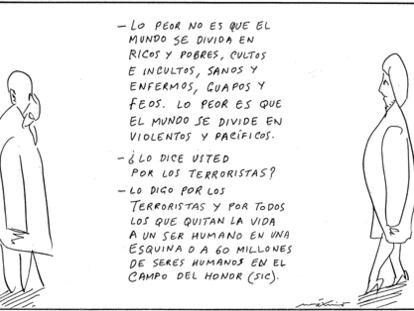 – LO PEOR NO ES QUE EL
MUNDO SE DIVIDA EN
RICOS Y POBRES, CULTOS
E INCULTOS, SANOS Y
ENFERMOS, GUAPOS Y
FEOS. LO PEOR ES QUE
EL MUNDO SE DIVIDE EN
VIOLENTOS Y PACÍFICOS.
– ¿LO DICE USTED
POR LOS TERRORISTAS?
– LO DIGO POR LOS
TERRORISTAS Y POR TODOS
LOS QUE QUITAN LA VIDA
A UN SER HUMANO EN UNA
ESQUINA O A 60 MILLONES
DE SERES HUMANOS EN EL
CAMPO DEL HONOR (SIC).
máximo